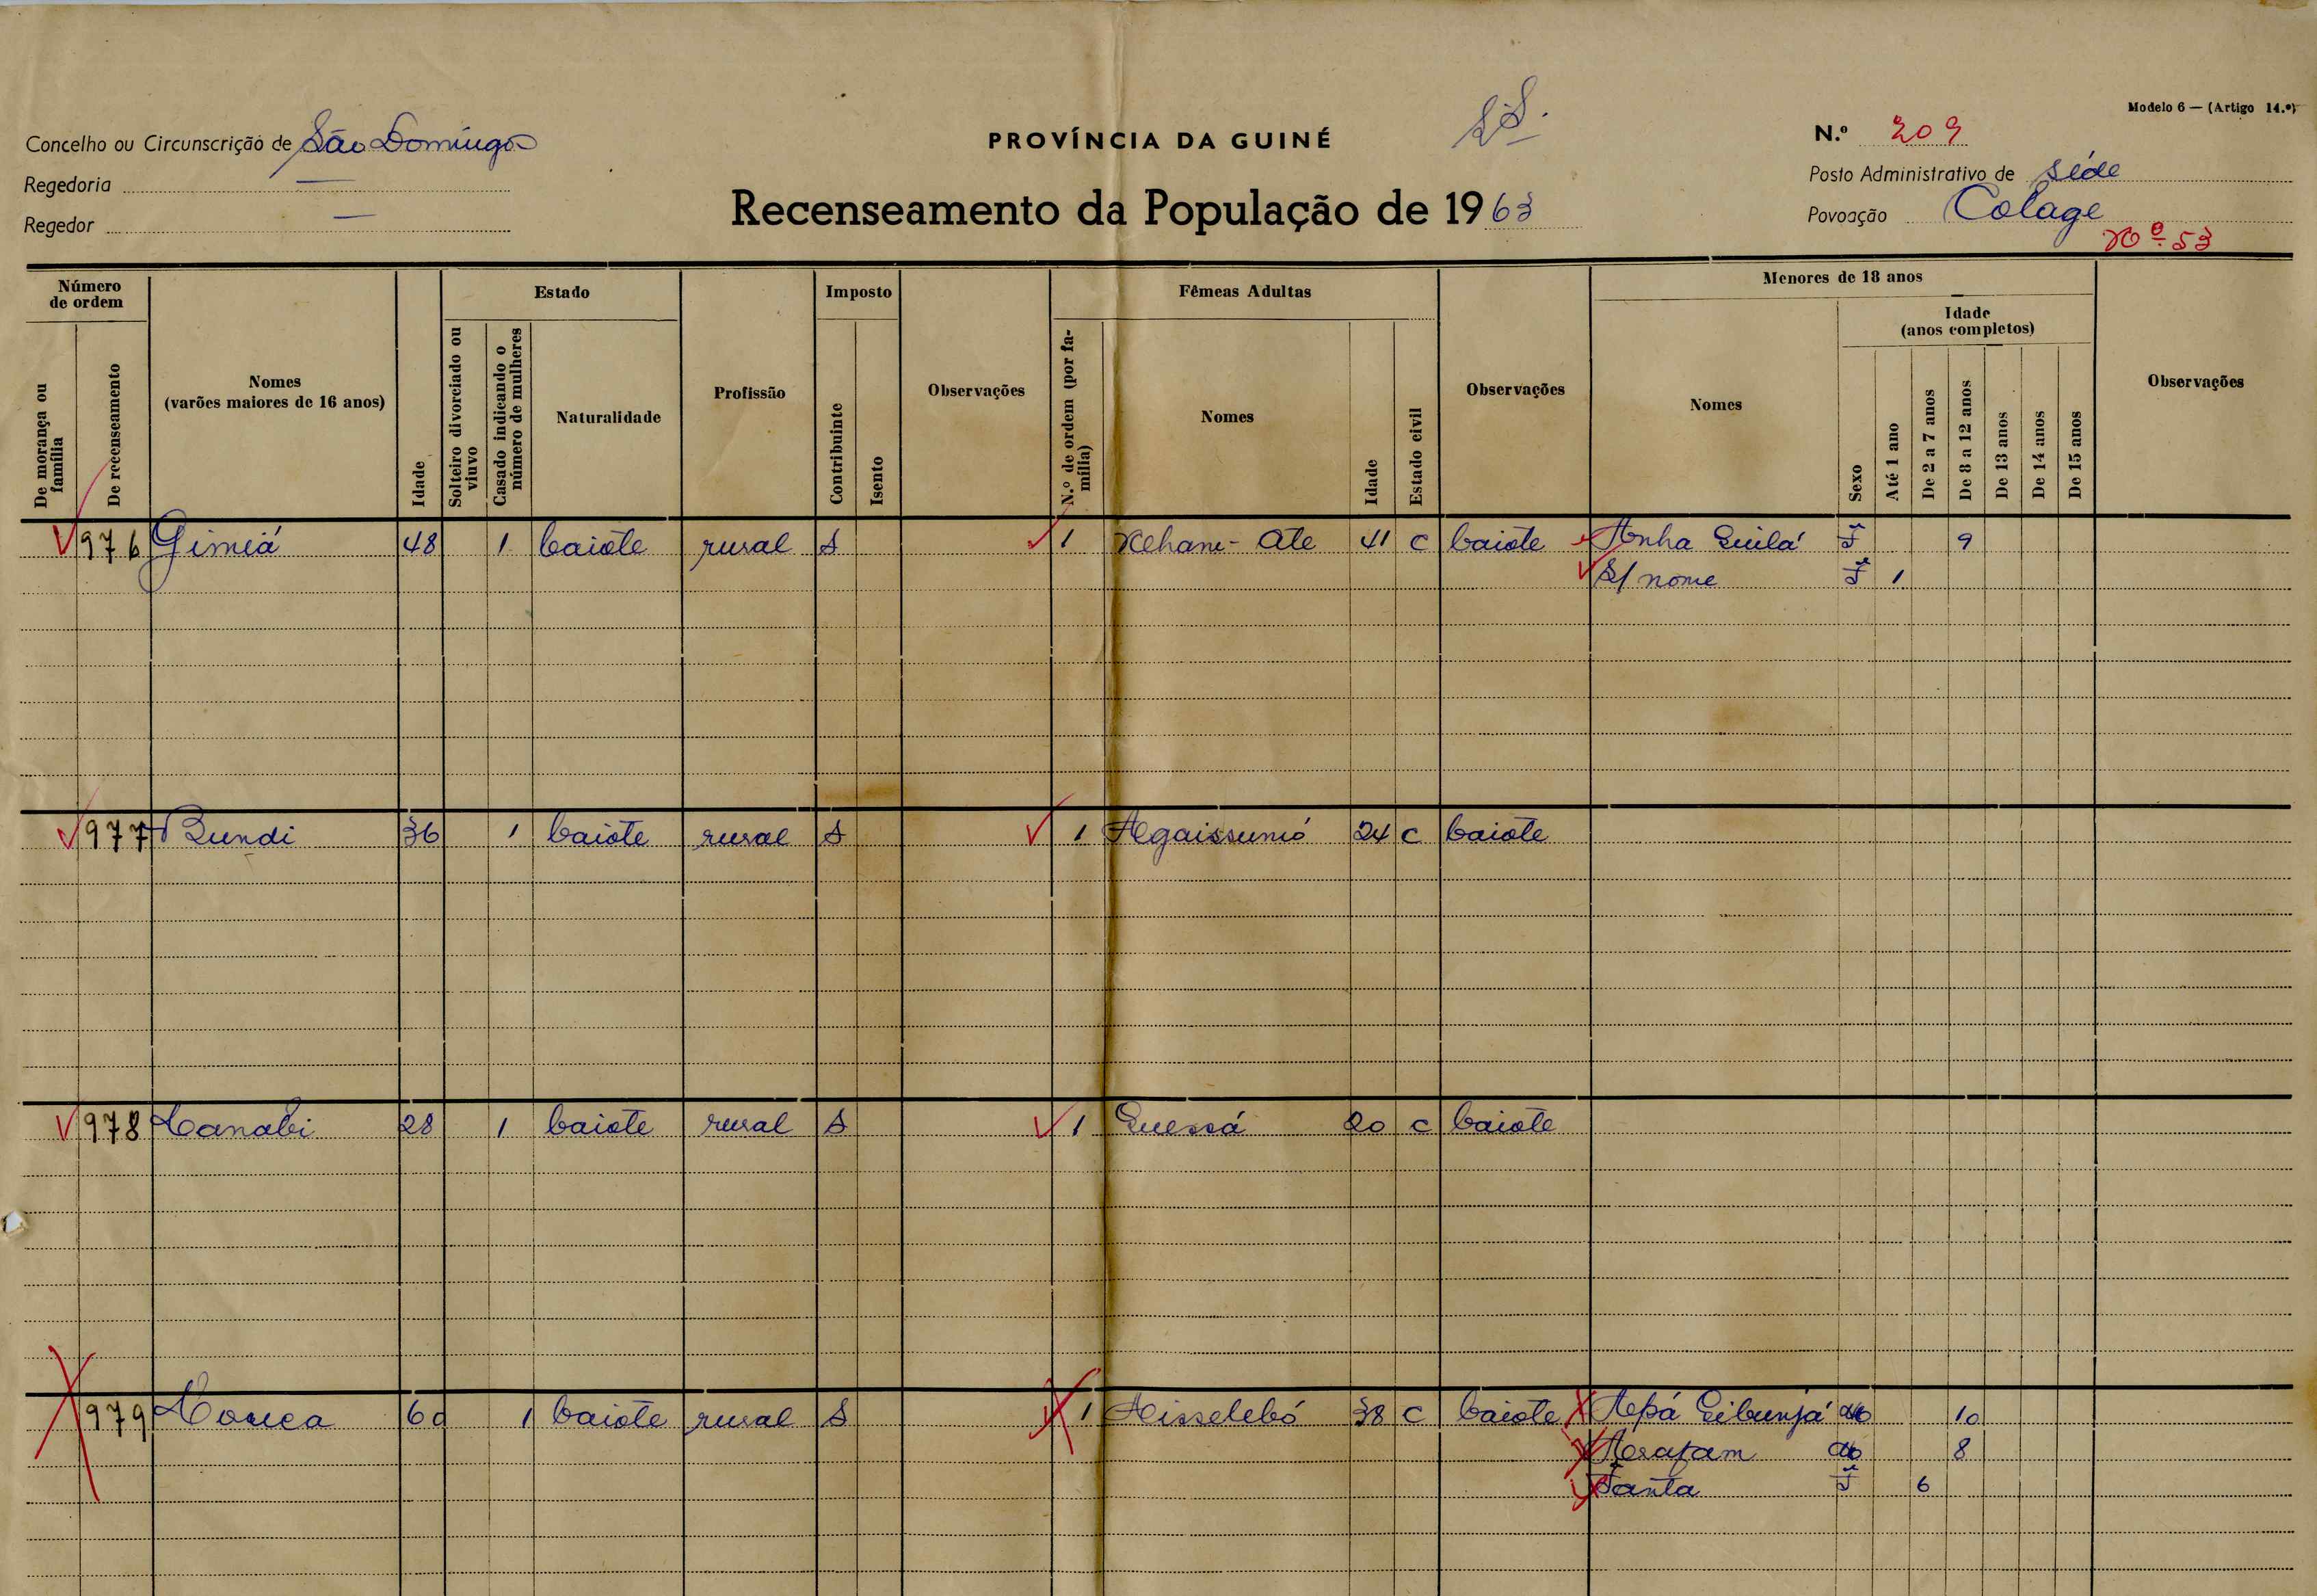 Modelo 6 — (Artigo 14.º)
Concelho ou Circunscrição de São Domingos
PROVÍNCIA DA GUINÉ
N.º 209
Regedoria —
Posto Administrativo de Séde
Regedor —
Recenseamento da População de 1963
Povoação Colage
Nº 53
Número de ordem
Estado
Imposto
Fêmeas Adultas
Menores de 18 anos
Idade (anos completos)
De morança ou família
De recenseamento
Nomes (varões maiores de 16 anos)
Idade
Solteiro divorciado ou viuvo
Casado indicando o número de mulheres
Naturalidade
Profissão
Contribuinte
Isento
Observações
N.º de ordem (por família)
Nomes
Idade
Estado civil
Observações
Nomes
Sexo
Até 1 ano
De 2 a 7 anos
De 8 a 12 anos
De 13 anos
De 14 anos
De 15 anos
Observações
976 Gimiá 48 1 baiote rural S 1 41 c baiote F 9
S/ nome F 1
977 Bundi 36 1 baiote rural S 1 Agaissumó 24 c baiote
978 28 1 baiote rural S 1 20 c baiote
979 60 1 baiote rural S 1 38 c baiote 10
8
Fanta F 6